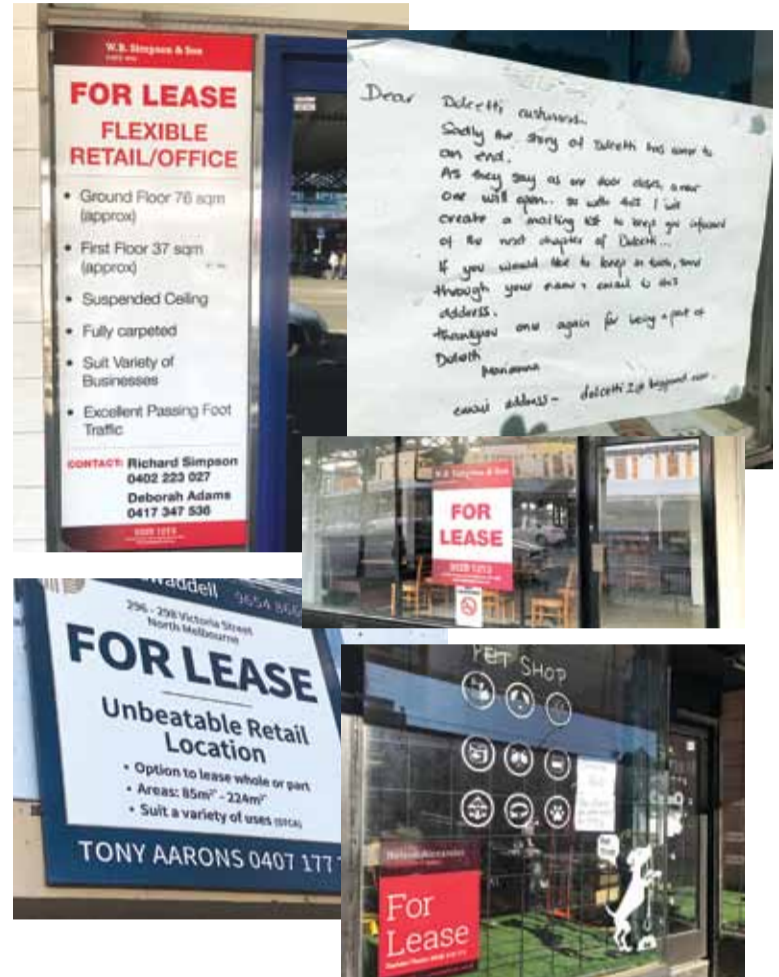 W.B. Simpson & Son
FOR LEASE
FLEXIBLE
RETAIL/OFFICE
• Ground Floor 76 sqm
(approx)
• First Floor 37 sqm
(approx)
• Suspended Ceiling
• Fully carpeted
• Suit Variety of
Businesses
• Excellent Passing Foot
Traffic
CONTACT: Richard Simpson
0402 223 027
Deborah Adams
0417 347 536
9329 1213
Dear Dolcetti customers...
Sadly the story of Dolcetti has come to
an end.
As they say as one door closes, a new
one will open.. so with this I will
create a mailing list to keep you informed
of the next chapter of Dolcetti...
If you would like to keep in touch, send
through your name & email to this
address.
thankyou once again for being a part of
Dolcetti
Marianna
email address -
W.B. Simpson & Son
FOR
LEASE
9329 1213
waddell 9654 866
296 - 298 Victoria Street
North Melbourne
FOR LEASE
Unbeatable Retail
Location
• Option to lease whole or part
• Areas: 85m² - 224m²
• Suit a variety of uses (STCA)
TONY AARONS 0407 177
PET SHOP
Nelson Alexander
For
Lease